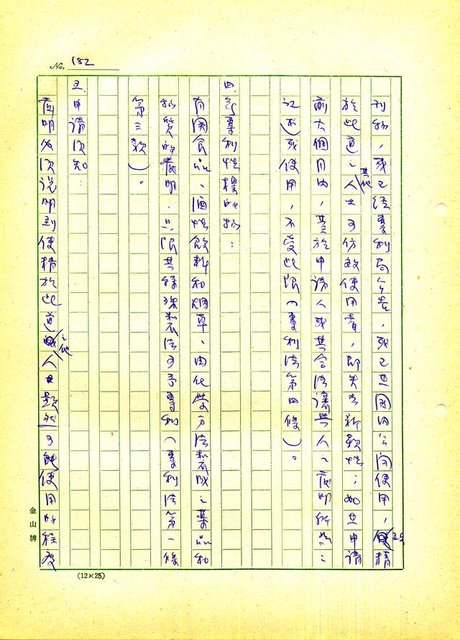 No. 182
刊物，或已經專利局公告，或已在國內公開使用，使精
於此道之其他人士可仿效使用者，即失去新穎性；如在申請
前六個月內，基於申請人或其合法讓與人之發明所為之
記述或使用，不受此限（專利法第四條）。
四、專利性標的物：
有關食品、酒性飲料和煙草、由化學方法製成之藥品和
物質的發明，只限其特殊製法可予專利（專利法第一條
第三款）。
五、申請須知：
發明必須說明到使精於此道之其他人士顯然可能使用的程度
金山牌
(12×25)